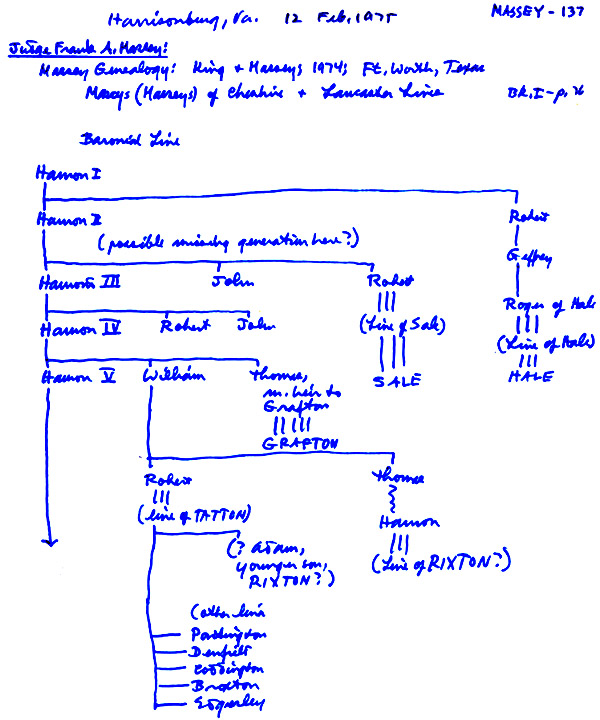 Harrisonburg, Va. 12 Feb, 1975
MASSEY - 137
Judge Frank A. Massey:
Massey Genealogy: King + Massey; 1974; Ft. Worth, Texas
Masseys (Masseys) of Cheshire + Lancaster Lines
Bk. I - p. 76
Baronial Line
Hamon I
Hamon II
Robert
(possible missing generation here?)
Geffrey
Hamon III
John
Robert
Roger of Hale
Hamon IV
Robert
John
(Line of Sale)
(Line of Hale)
Hamon V
William
Thomas,
m. heir to
Grafton
GRAFTON
SALE
HALE
Robert
(line of TATTON)
Thomas
Hamon
(Line of RIXTON?)
(? Adam,
younger son,
RIXTON?)
(other line
Podington
Denfield
Coddington
Broxton
Edgerley